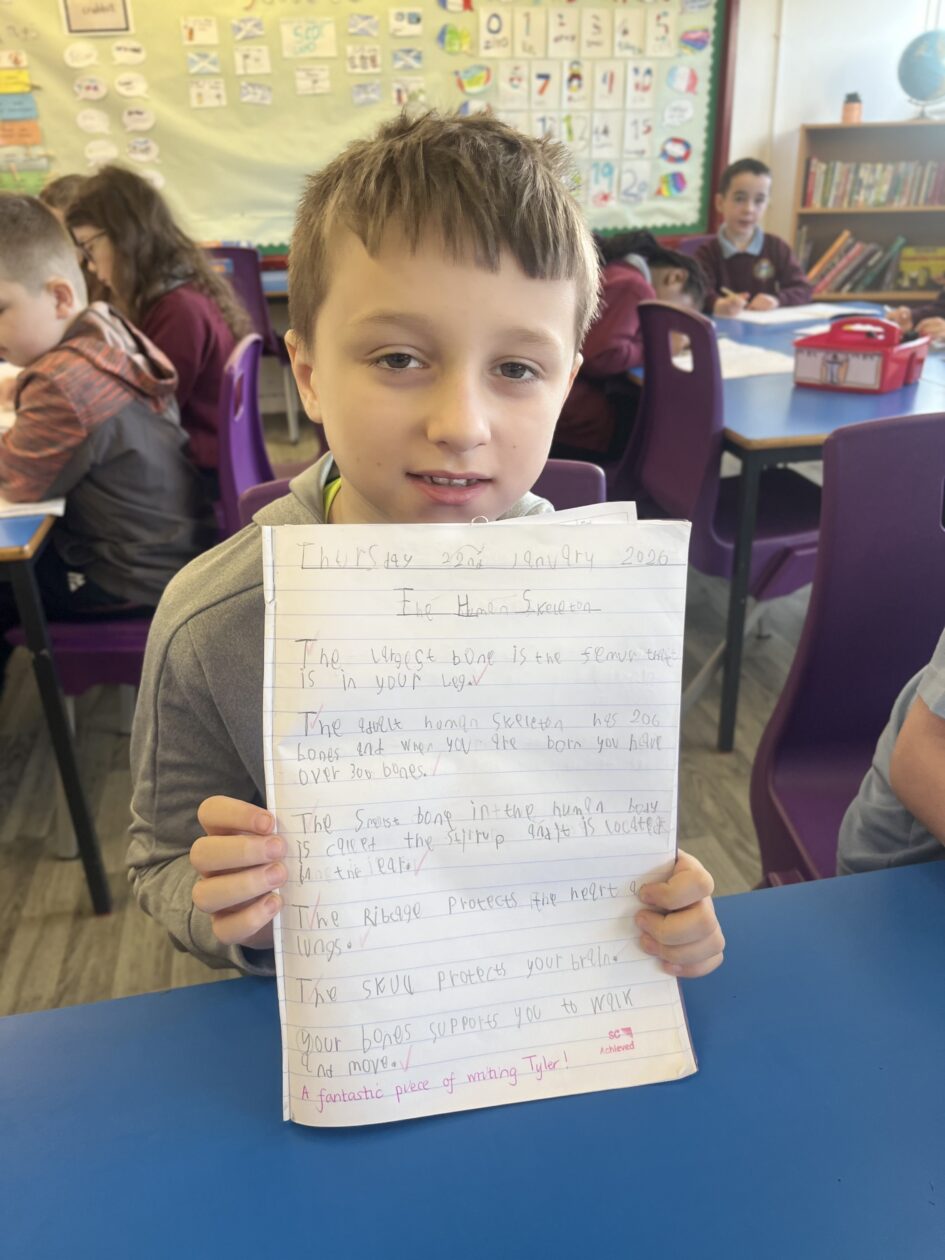 crabbit
0 1 2 3 4 5
6 7 8 9 10
11 12 13 14 15
19 20
Thursday 22nd January 2026
The Human Skeleton
The largest bone is the femur that
is in your leg.
The adult human skeleton has 206
bones and when you are born you have
over 300 bones.
The Smlest bone in the human body
is called the Stjrup and it is located
the ear.
The Ribcage protects the heart
lungs.
The skull protects your brain.
your bones supports you to walk
and move.
SC
Achieved
A fantastic piece of writing Tyler!